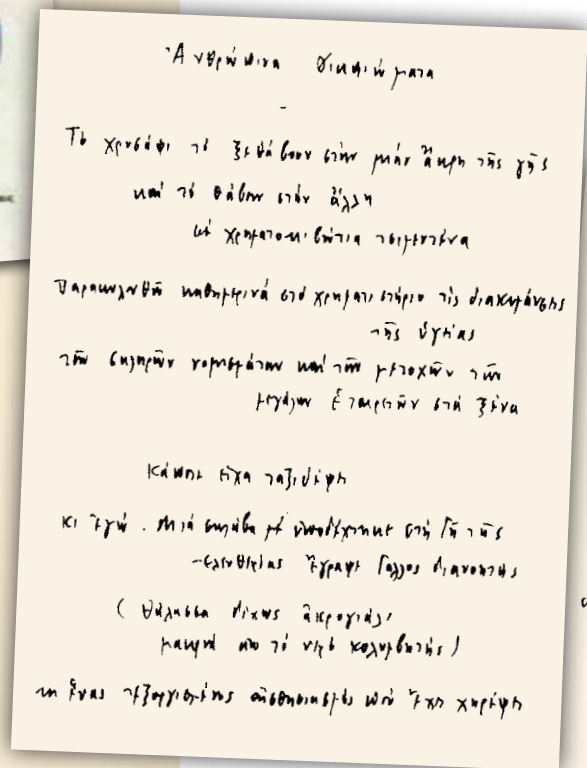 Ἀνθρώπινα δικαιώματα
-
Τὸ χρυσάφι τὸ ξεθάβουν στὴν μιὰν ἄκρη τῆς γῆς
καὶ τὸ θάβουν στὴν ἄλλη
σὲ χρηματοκιβώτια τσιμεντένα
Παρακολουθῶ καθημερινά στὸ χρηματιστήριο τὶς διακυμάνσεις
τῆς ὑγείας
τῶν σκληρῶν νομισμάτων καὶ τῶν μετοχῶν τῶν
μεγάλων ἑταιρειῶν στὰ ξένα
Κάποτε εἶχα ταξιδέψει
κι ἐγώ. Μιά σκλάβα μὲ ὑποδέχτηκε στὴ Γῆ τῆς
-ελευθερίας ἔγραψε Γάλλος διανοητής
(θάλασσα δίχως ἀκρογιάλι
μακρυὰ απὸ τὸ νερό κολυμβητής)
κι ἕνας ἐξοργισμένος αἰσθησιασμός ποὺ ἔχει χηρέψει